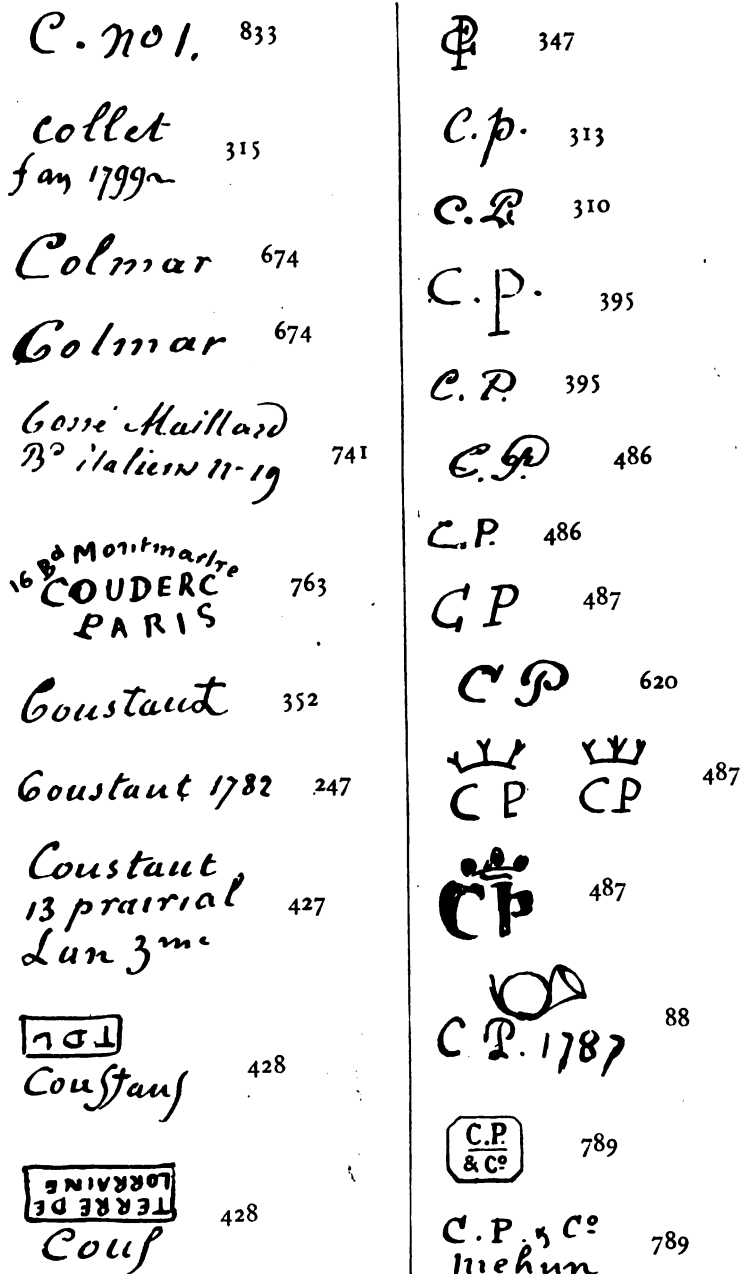 C. no 1. 833
Collet 315
fan 1799
Colmar 674
Colmar 674
Cossé Maillard
Bd italiens n-19 741
16 Bd Montmartre
COUDERC 763
PARIS
Constant 352
Constant 1782 247
Constant
13 prairial 427
Lan 3me
TDL
Couſtans 428
TERRE DE
LORRAINE
428
Couſ
CP 347
C.p. 313
C.P. 310
C.P. 395
C.P. 395
C.P. 486
C.P. 486
C P 487
C P 620
C P CP 487
CP 487
C P. 1787 88
C.P.
& Co 789
C.P. & Co 789
mehun